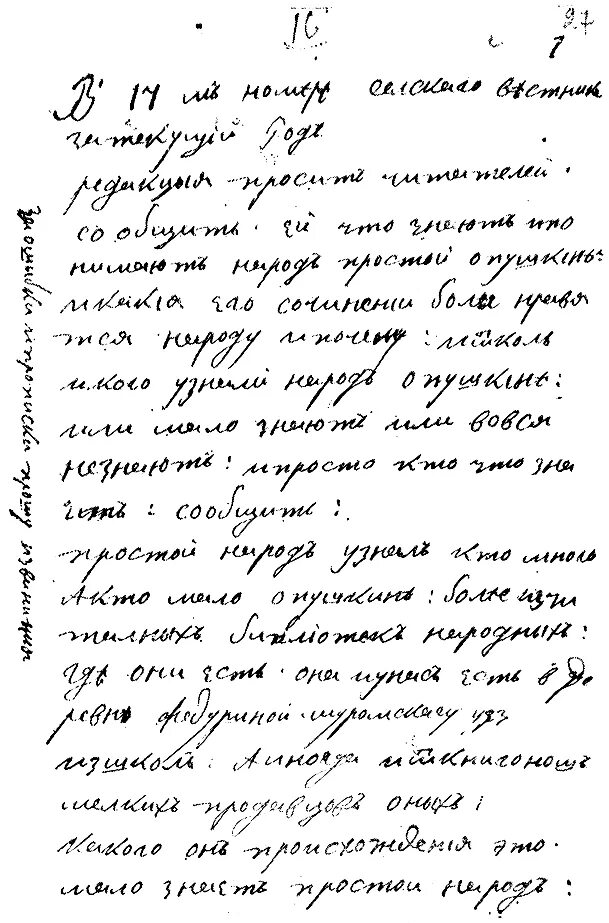 16
27
1
В 17 мъ номерѣ селскаго вѣстник
за текущій Годъ
редакцыя проситъ читателей.
сообщить. ей что знаютъ ипо
нимаютъ народъ простой опушкинѣ:
икакія его сочинении болѣ нравя
тся народу ипочему: иотколь
икого узнали народъ опушкинѣ:
или мало знаютъ или вовся
незнаютъ: ипросто кто что зна
етъ: сообщить:
простой народъ узналъ кто много
Акто мало опушкинѣ: болѣ изчи
талныхъ библіотекъ народныхъ:
гдѣ они есть. она иунасъ есть в де
ревнѣ Федуриной муромскаго уѣз
изшколъ: Аиногда иоткнигоношъ
мелкихъ продавцовъ оныхъ:
какого онъ происхожденія это.
мало знаетъ простой народъ:
за ошибки ипрописки прошу извинить